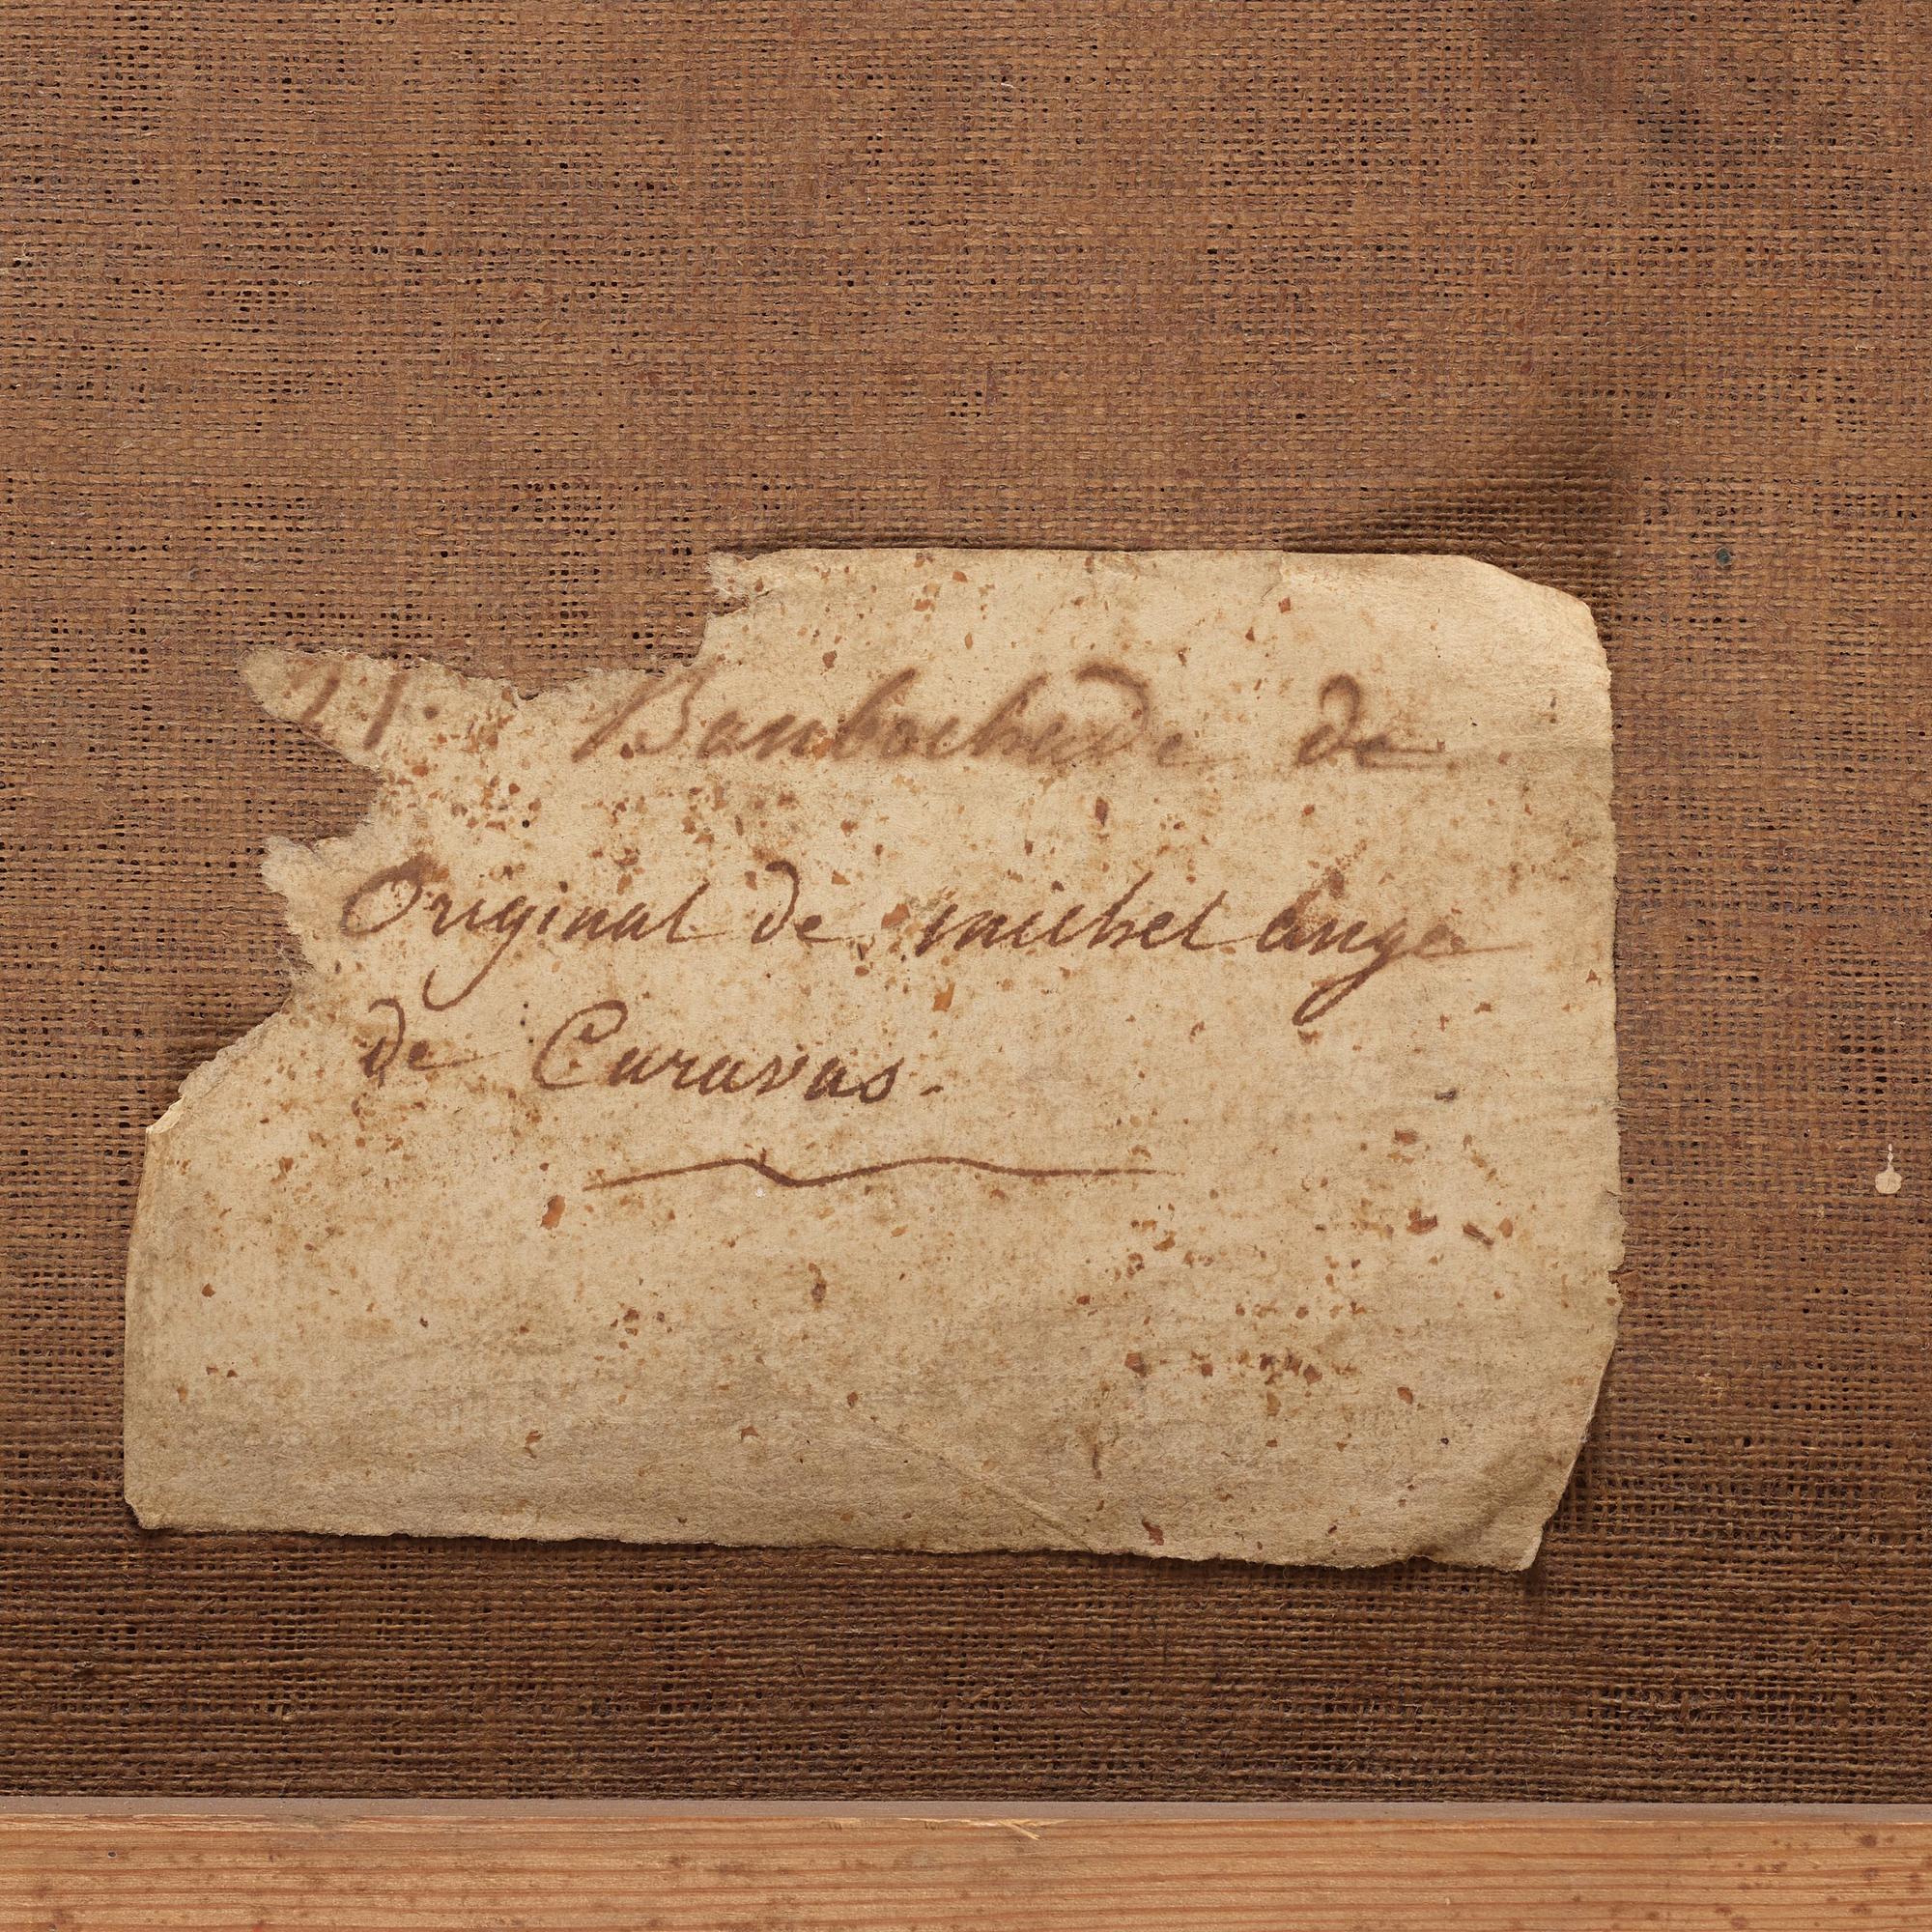 Banbochade de
Original de michel ange
de Caravas.